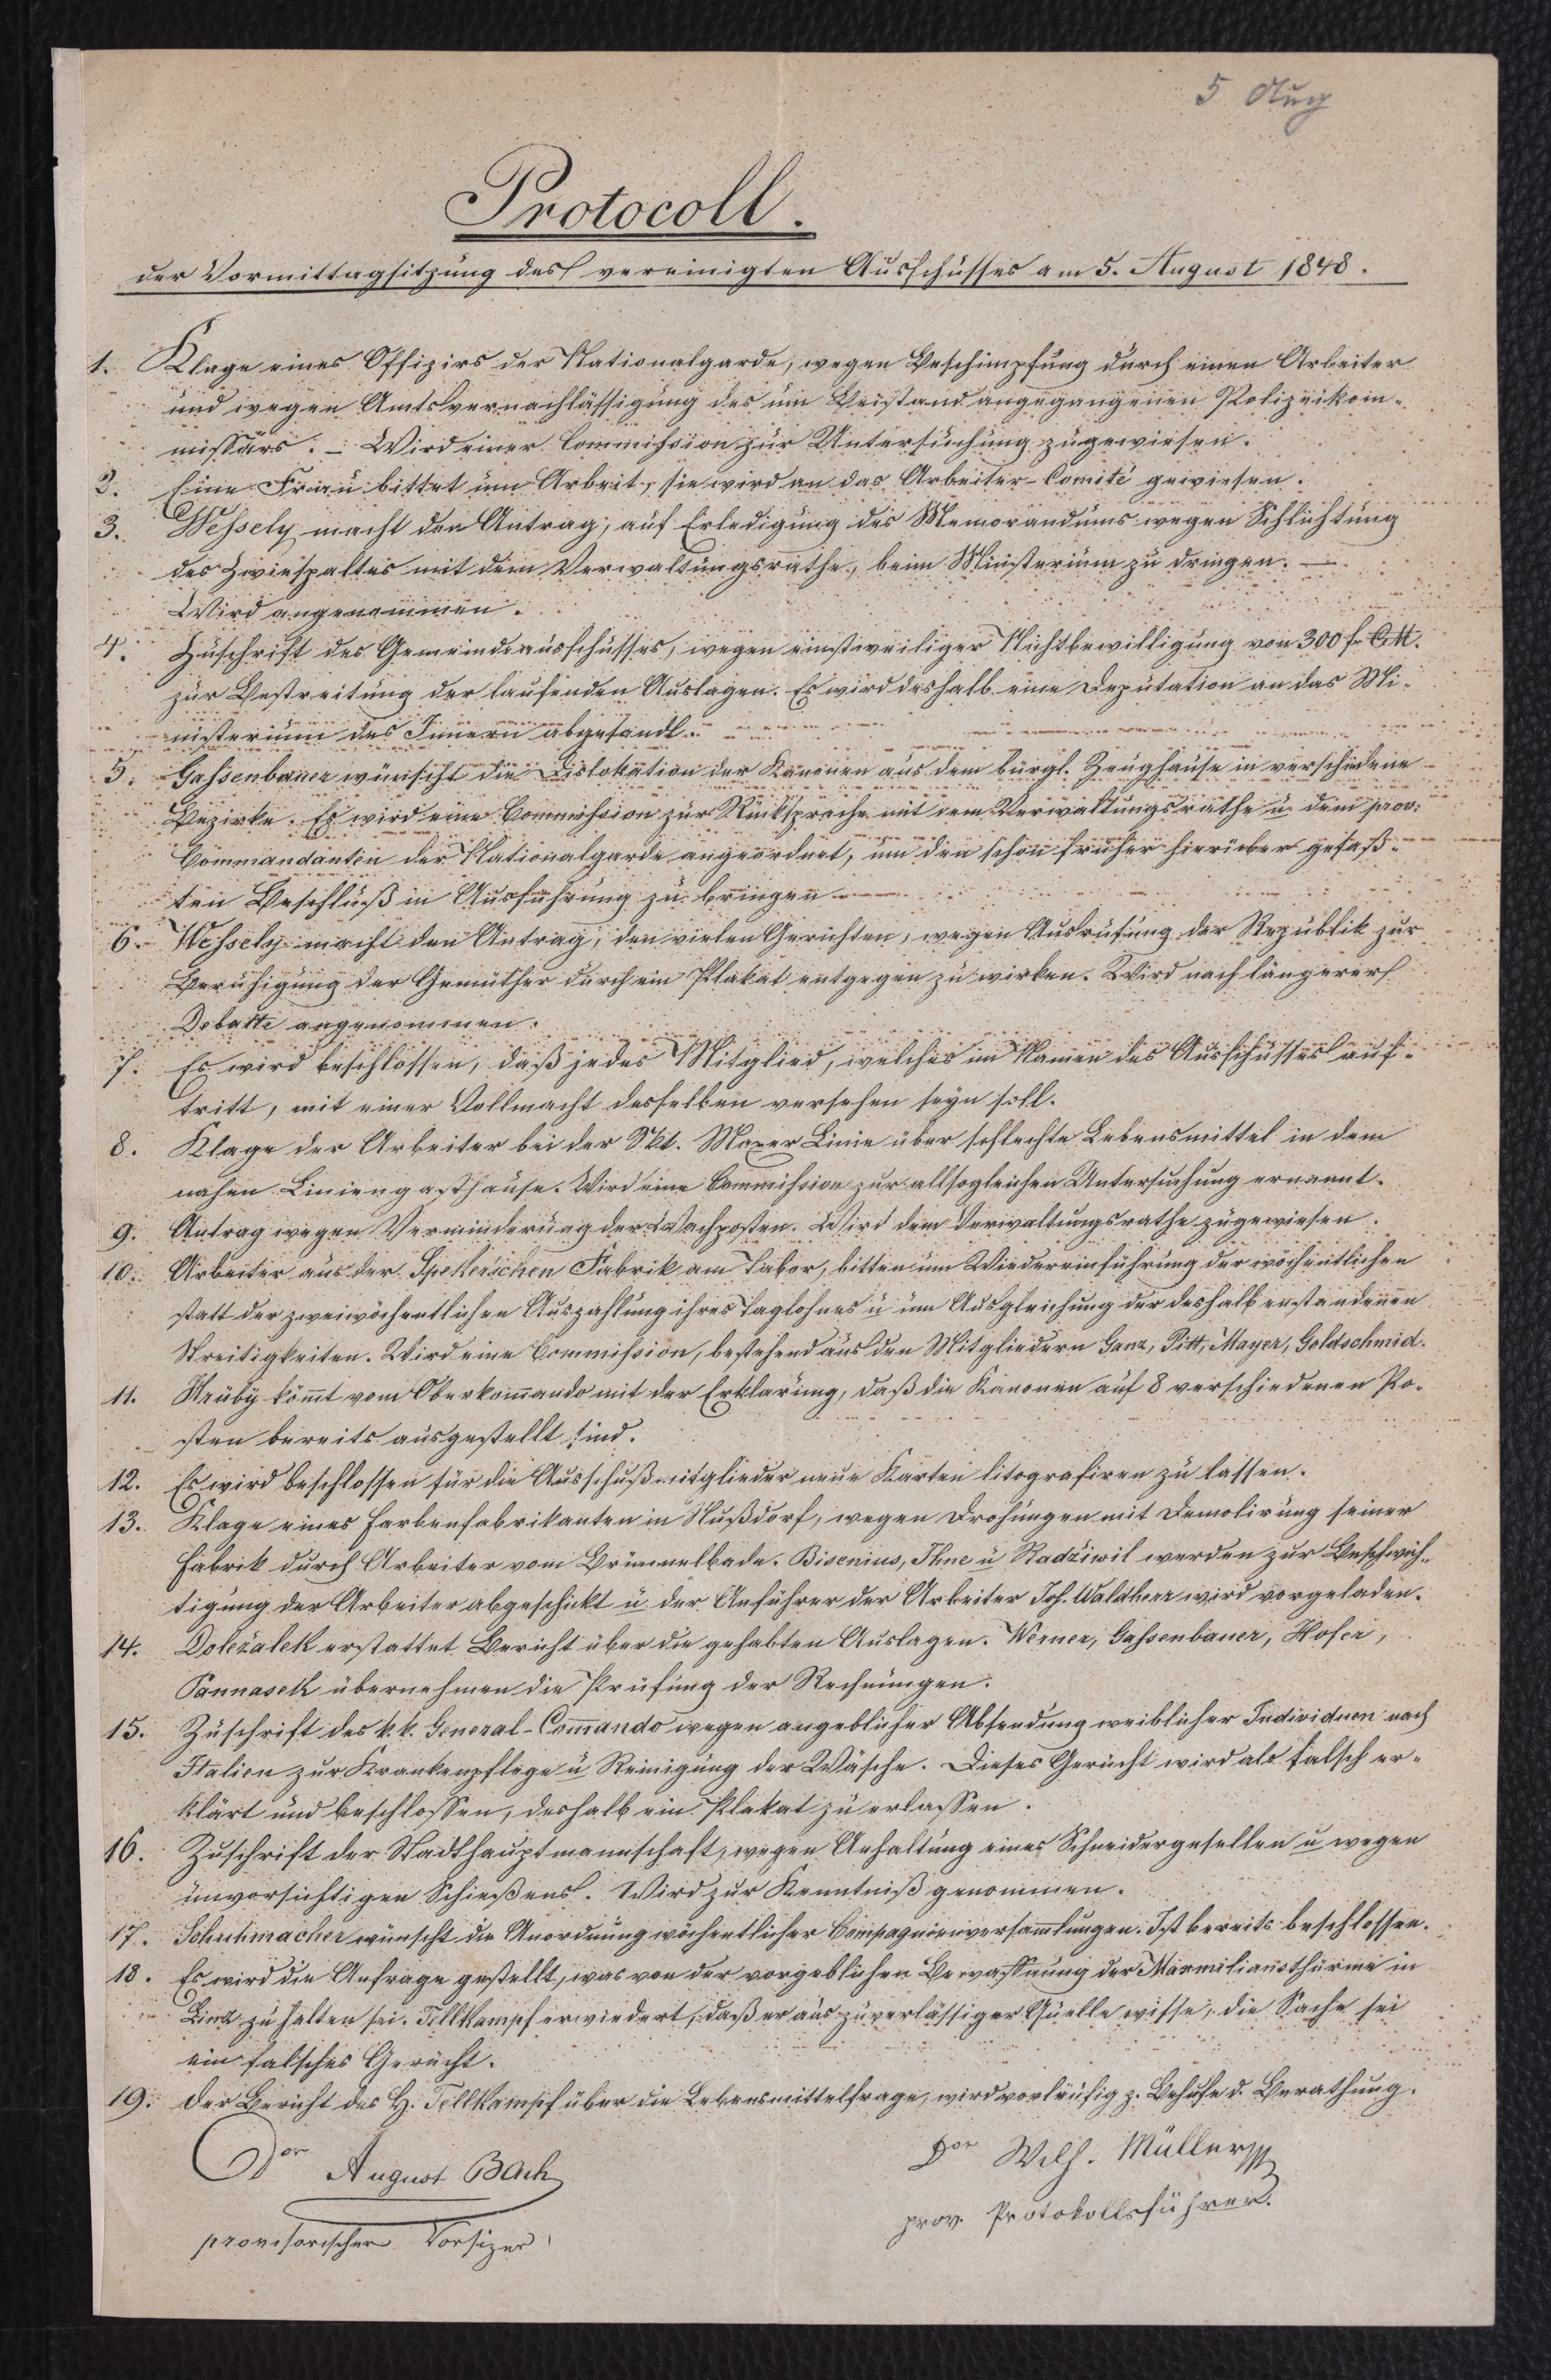 5 Aug
Protocoll.
der Vormittagsitzung des vereinigten Ausschusses am 5. August 1848.
1. Klage eines Offizirs der Nationalgarde, wegen Beschimpfung durch einen Arbeiter
und wegen Amtsvernachlässigung des um Beistand angegangenen Polizeikom-
missärs. – Wird einer Commission zur Untersuchung zugewiesen.
2. Eine Frau bittet um Arbeit, sie wird an das Arbeiter-Comité gewiesen.
3. Wessely macht den Antrag, auf Erledigung des Memorandums wegen Schlichtung
des Zwiespaltes mit dem Verwaltungsrathe, beim Ministerium zu dringen. —
Wird angenommen.
4. Zuschrift des Gemeindeausschusses, wegen einstweiliger Nichtbewilligung von 300 f. CM.
zur Bestreitung der laufenden Auslagen. Es wird deshalb eine Deputation an das Mi-
nisterium des Innern abgesandt.
5. Gassenbauer wünscht die Dislokation der Kanonen aus dem bürgl. Zeughause in verschiedene
Bezirke. Es wird eine Commission zur Rücksprache mit dem Verwaltungsrathe u. dem prov:
Commandanten der Nationalgarde angeordnet, um den schon früher hierüber gefaß-
ten Beschluß in Ausführung zu bringen
6. Wessely macht den Antrag, den vielen Gerichten, wegen Ausrufung der Republik zur
Beruhigung der Gemüther durch ein Plakat entgegen zu wirken. Wird nach längerer
Debatte angenommen.
7. Es wird beschlossen, daß jedes Mitglied, welches im Namen des Ausschusses auf-
tritt, mit einer Vollmacht desselben versehen seyn soll.
8. Klage der Arbeiter bei der Skt. Maxer Linie über schlechte Lebensmittel in dem
nahen Liniengasthause. Wird eine Commission zur allsogleichen Untersuchung ernannt.
9. Antrag wegen Verminderung der Wachposten. Wird dem Verwaltungsrathe zugewiesen.
10. Arbeiter aus der Spekerschen Fabrik am Tabor, bitten um Wiedereinführung der wöchentlichen
statt der zweiwöchentlichen Auszahlung ihres Taglohnes u um Ausgleichung der deshalb enstandenen
Streitigkeiten. Wird eine Commission, bestehend aus den Mitgliedern Ganz, Pitt, Mayer, Goldschmid.
11. Hruby kömt vom Oberkomando mit der Erklärung, daß die Kanonen auf 8 verschiedenen Po-
sten bereits ausgestellt sind.
12. Es wird beschlossen für die Ausschußmitglieder neue Karten litografiren zu lassen.
13. Klage eines Farbenfabrikanten in Nußdorf, wegen Drohungen mit Demolirung seiner
Fabrik durch Arbeiter vom Brünnelbade. Bisenius, Ihne u Radźiwil werden zur Beschwich-
tigung der Arbeiter abgeschikt u der Anführer der Arbeiter Joh. Waldherr wird vorgeladen.
14. Doležalek erstattet Bericht über die gehabten Auslagen. Werner, Gassenbauer, Hofer,
Pannasek übernehmen die Prüfung der Rechnungen.
15. Zuschrift des k. k. General-Comando wegen angeblicher Absendung weiblicher Individuen nach
Italien zur Krankenpflege u Reinigung der Wäsche. Dieses Gerücht wird als falsch er-
klärt und beschlossen, deshalb ein Plakat zu erlassen.
16. Zuschrift der Stadthauptmannschaft, wegen Anhaltung eines Schneidergesellen u wegen
unvorsichtigen Schießens. Wird zur Kenntniß genommen.
17. Schuhmacher wünscht die Anordnung wöchentlicher Compagnieversamlungen. Ist bereits beschlossen.
18. Es wird die Anfrage gestellt, was von der vorgeblichen Bewaffnung der Maxmiliansthürme in
Linz zu halten sei. Tellkampf erwiedert, daß er aus zuverlässiger Quelle wisse, die Sache sei
ein falsches Gerücht.
19. Der Bericht des H. Tellkampf über die Lebensmittelfrage, wird vorläufig z. Behufe d. Berathung.
Dor August Bach
provisorischer Vorsizer
Dor Wilh. Müller
prov. Protokollsführer.